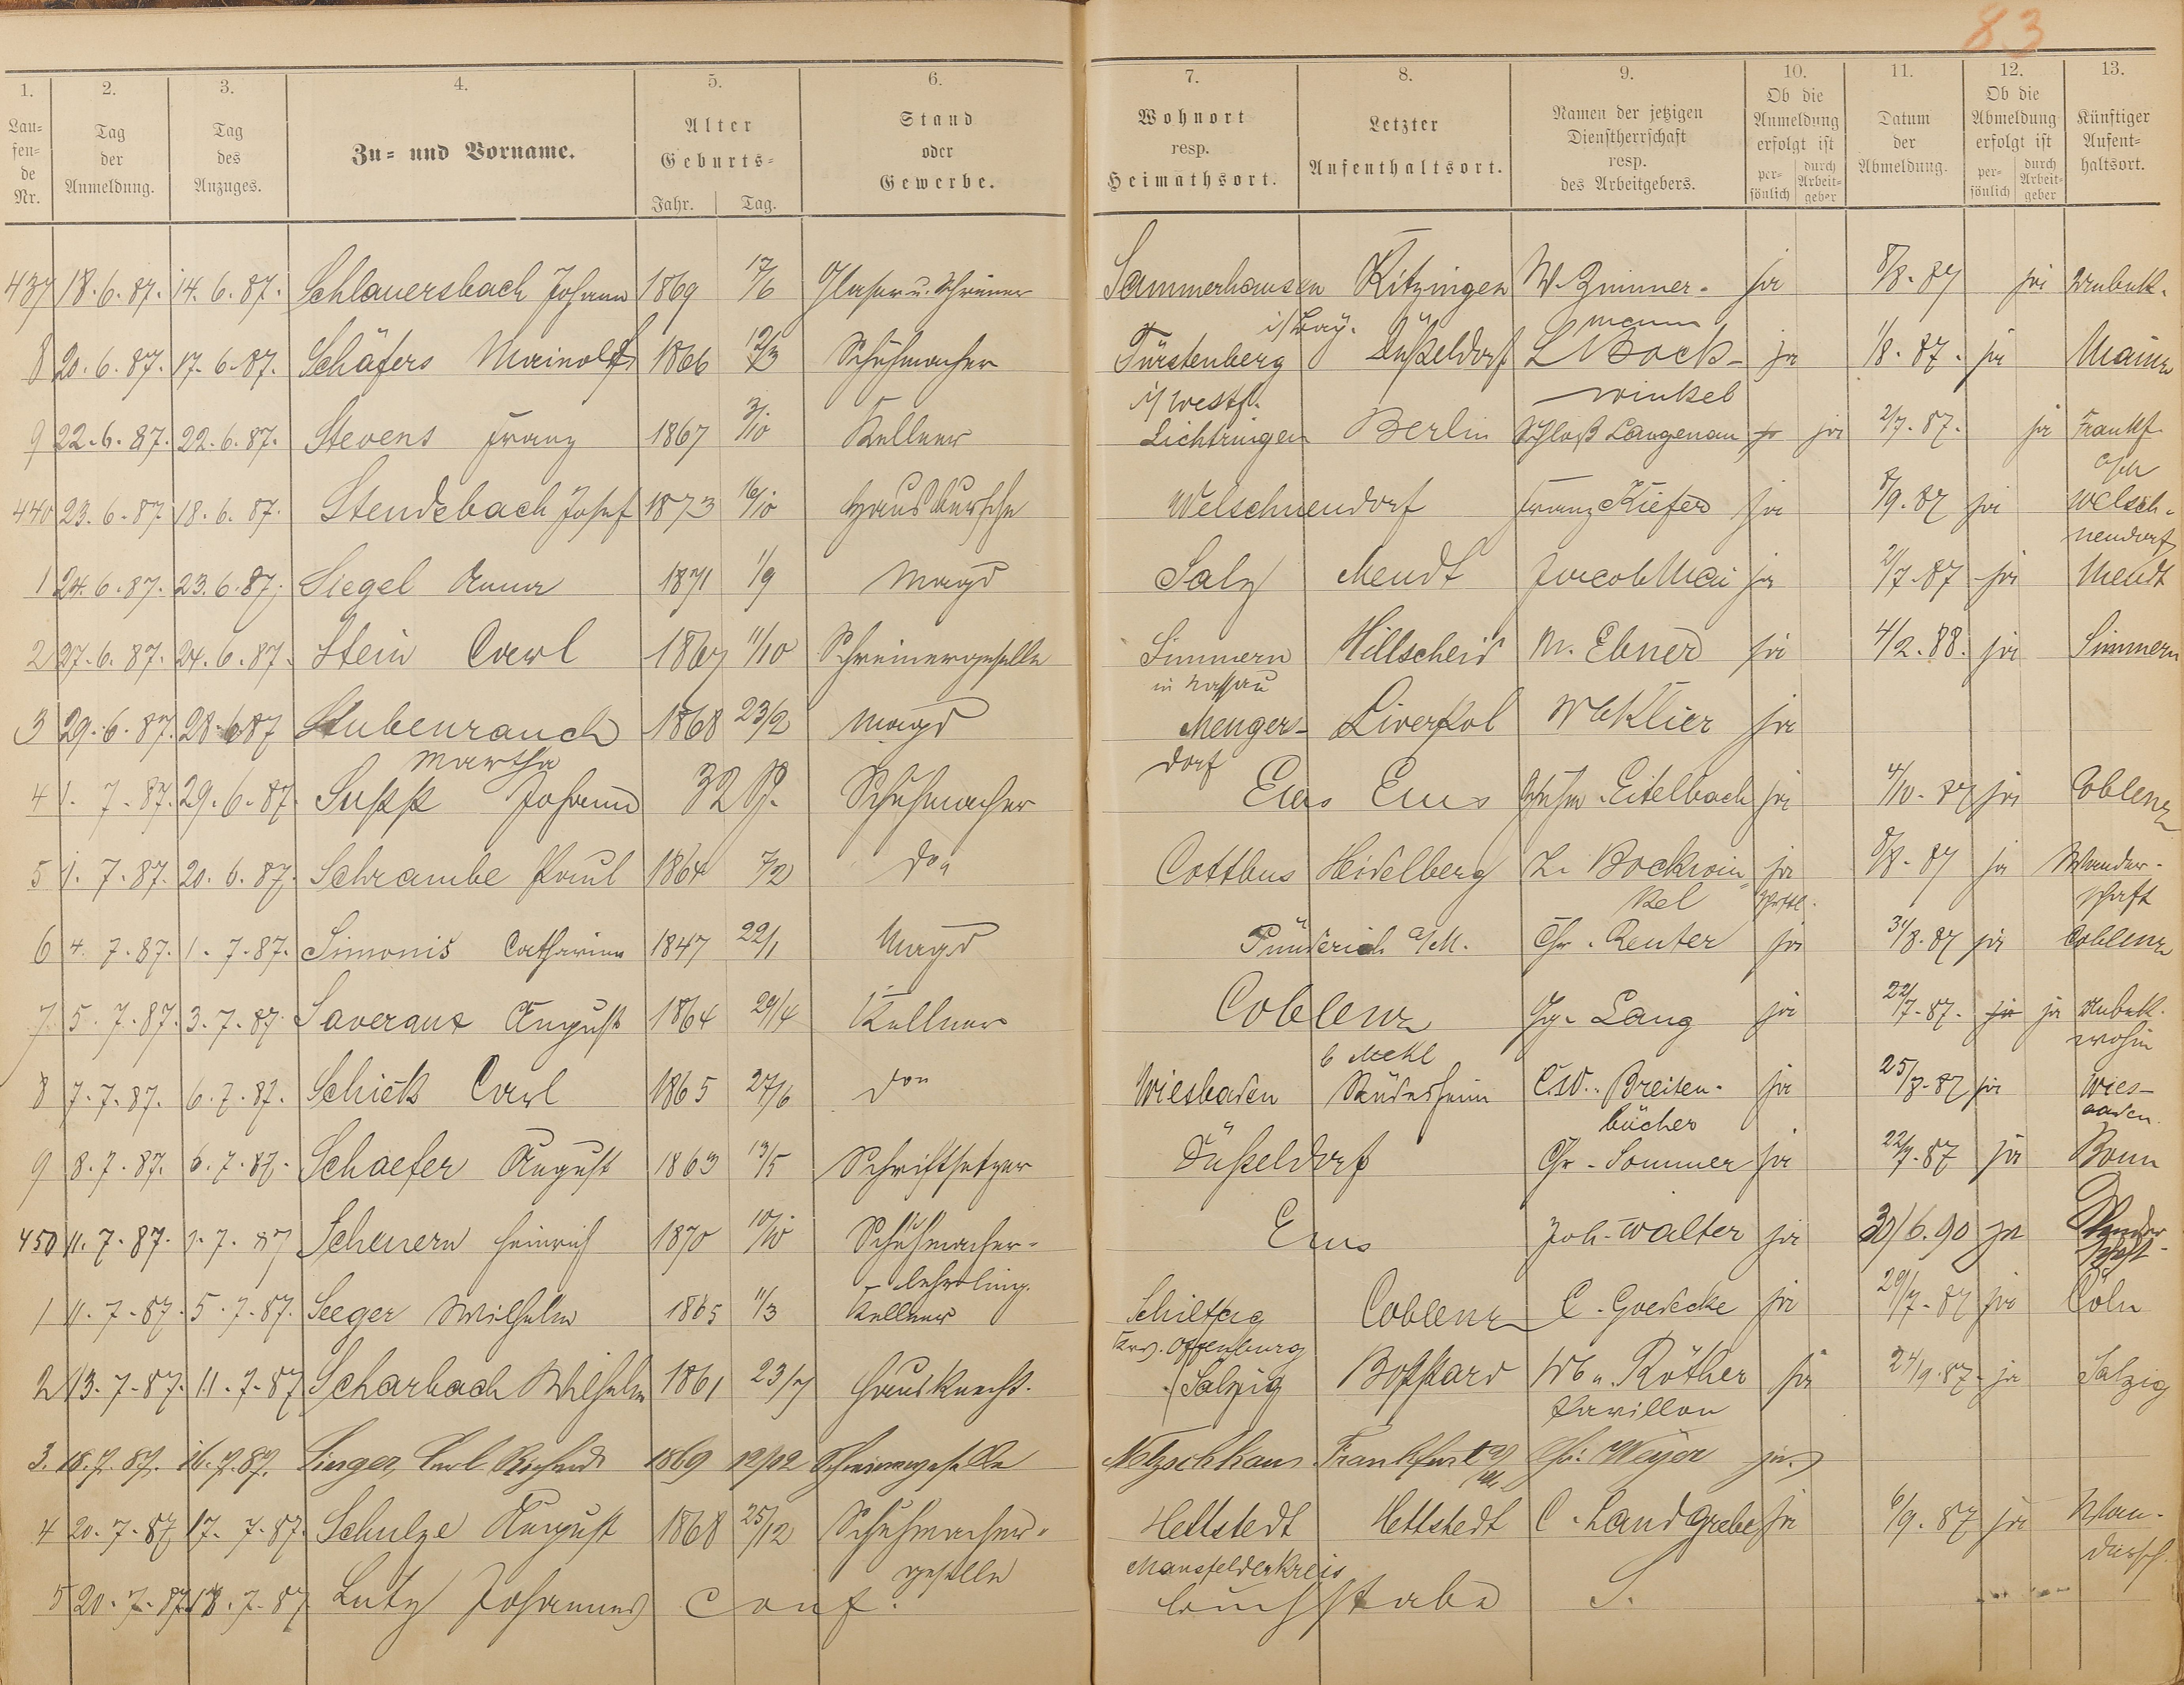 83
1. 2. 3. 4. 5. 6. 7. 8. 9. 10. 11. 12. 13.
Laufende Nr. Tag der Anmeldung. Tag des Anzuges. Zu- und Vorname. Alter Geburts- Jahr. Tag. Stand oder Gewerbe. Wohnort resp. Heimathsort. Letzter Aufenthaltsort. Namen der jetzigen Dienstherrschaft resp. des Arbeitgebers. Ob die Anmeldung erfolgt ist persönlich durch Arbeitgeber Datum der Abmeldung. Ob die Abmeldung erfolgt ist persönlich durch Arbeitgeber Künftiger Aufenthaltsort.
437 18.6.87. 14.6.87. Schlauersbach Johann 1869 17/6 Glaser u. Schreiner Sammerhausen i/Bay. Kitzingen W. Zimmermann ja 8/8.87 ja Unbek.
8 20.6.87. 17.6.87. Schäfers Mainolf 1866 12/3 Schuhmacher Fürstenberg i/Westf. Düßeldorf L Bockwinkel ja 1/8.87. ja Mainz
9 22.6.87. 22.6.87. Stevens Franz 1867 3/10 Kellner Lichtringen Berlin Schloß Langenau ja ja 2/7.87. ja Frankf.
440 23.6.87 18.6.87. Stendebach Josef 1873 16/10 Hausbursche Welschneudorf Franz Kiefer ja 8/9.87 ja Welschneudorf
1 24.6.87. 23.6.87. Siegel Anna 1871 1/9 Magd Salz Meudt Jacob Mai ja 2/7.87 ja Meudt
2 27.6.87. 24.6.87. Stein Carl 1867 11/10 Schreinergeselle Simmern in Nassau Hillscheid M. Ebner ja 4/2.88. ja Simmern
3 29.6.87. 28.6.87 Stubenrauch Martha 1868 23/2 Magd Mengersdorf Liverpol Klier ja
4 1.7.87. 29.6.87. Supp Johann 32 J. Schuhmacher Ems Ems Eitelbach ja 4/10.87 ja Coblenz
5 1.7.87. 20.6.87. Schrambe Paul 1864 7/2 do. Cottbus Heidelberg L. Bockwinkel ja 8/8.87 ja Wanderschaft
6 4.7.87. 1.7.87. Simonis Catharina 1847 22/1 Magd Pünderich a/M. Chr. Reuter ja 31/8.87 ja Coblenz
7 5.7.87. 3.7.87. Saveraux August 1864 29/4 Kellner Coblenz Gg. Lang ja 22/7.87. ja ja Unbek. wohin
8 7.7.87. 6.7.87. Schick Carl 1865 27/6 do. Wiesbaden Rüdesheim Breitenbücher ja 25/8.87 ja Wiesbaden
9 8.7.87. 6.7.87. Schaefer August 1863 13/5 Schriftsetzer Düßeldorf Chr. Sommer ja 22/7.87 ja Bonn
450 11.7.87. 7.7.87 Scheuern Heinrich 1870 10/10 Schuhmacher-lehrling. Ems Joh. Walter ja 30/6.90 ja Wanderschaft
1 11.7.87. 5.7.87. Seeger Wilhelm 1865 11/3 Kellner Schiltag Krs. Offenburg Coblenz C. Goedecke ja 29/7.87 ja Cöln
2 13.7.87. 11.7.87 Scharbach Wilhelm 1861 23/7 Hausknecht. Salzig Boppard Wb. Röther Pavillon ja 24/9.87. ja Salzig
3. 18.7.87. 16.7.87. Singer, Carl Richard 1869 12/12 Schreinergeselle Frankfurt a/M. Chr. Meyer ja.
4 20.7.87 17.7.87. Schulze August 1868 25/12 Schuhmachergeselle Hettstedt Mansfelderkreis Hettstedt C. Landgrebe ja 6/9.87 ja Wandersch.
5 20.7.87. 18.7.87 Lutz Johannes conf. Buchstabe S.